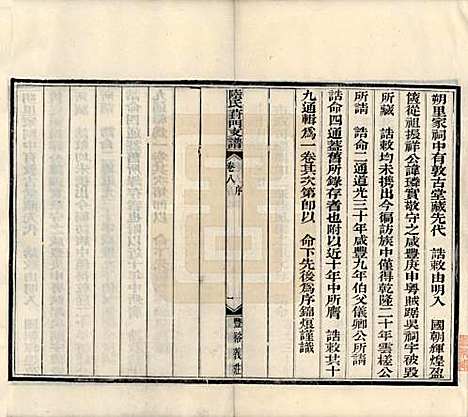 朔里家祠中有敦古堂藏先代　誥敕由明入　國朝輝煌盈
篋從祖援祥公諱璘實敬守之咸豐庚申粵賊踞吳祠宇被毀
所藏　誥敕均未携出今徧訪族中僅得乾隆二十年雲槎公
所請　誥命二通道光三十年咸豐九年伯父儀卿公所請
誥命四通蓋舊所錄存者也附以近十年中所膺　誥敕共十
九通輯爲一卷其次第即以　命下先後爲序錦烜謹識
陸氏葑門支譜
卷八　序
一
豐裕義莊